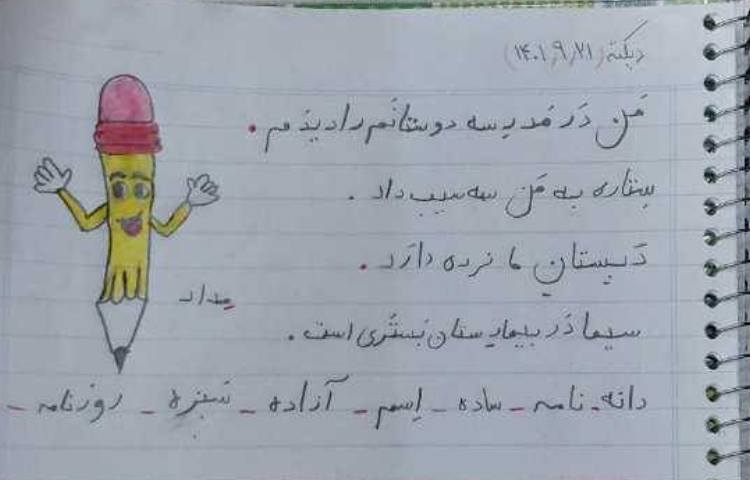 دیکته (۱۴۰۱٫۹٫۲۱)
مَن دَر مَدرِسه دوستانَم را دیدَم.
سِتاره به مَن سه سیب داد.
دَبِستان ما نَرده دارَد.
مِداد
سیما دَر بیمارِستان بَستَری است.
دانه - نامه - ساده - اِسم - آزاده - سَبزه - روزنامه -